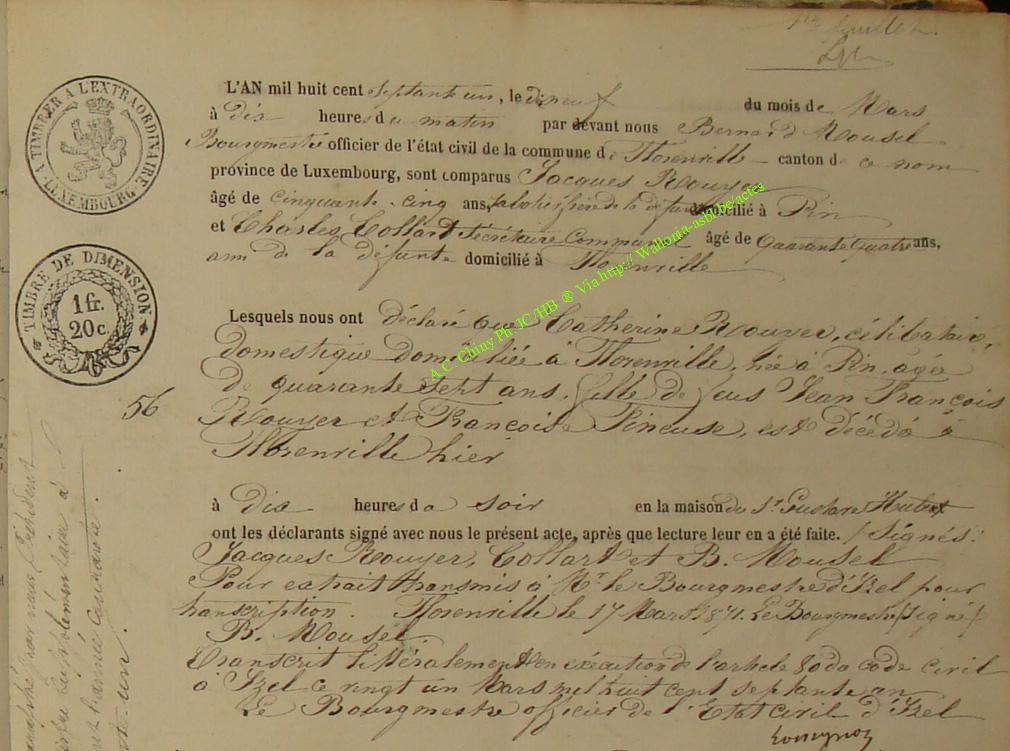 L'AN mil huit cent septante un, le dix neuf du mois de Mars
à dix heures du matin par devant nous Bernard Mousel
Bourgmestre officier de l'état civil de la commune de Florenville canton de ce nom
province de Luxembourg, sont comparus Jacques Rouyer
âgé de cinquante cinq ans, frère de la défunte domicilié à Pin
et Charles Collart Secrétaire Communal âgé de quarante quatre ans,
ami de la défunte domicilié à Florenville
Lesquels nous ont déclaré que Catherine Rouyer, célibataire,
domestique domiciliée à Florenville, née à Pin, agée
de quarante sept ans, fille de feus Jean François
Rouyer et Françoise Pineuse, est décédée à
Florenville hier
à dix heures du soir en la maison du Sr Gustave Hubert
ont les déclarants signé avec nous le présent acte, après que lecture leur en a été faite. / Signés:
Jacques Rouyer, Collart et B. Mousel
Pour extrait transmis à Mr le Bourgmestre d'Izel pour
transcription. Florenville le 17 Mars 1871. Le Bourgmestre / signé /
B. Mousel.
Transcrit littéralement en exécution de l'article 80 du code civil
à Izel ce vingt un Mars mil huit cent septante un
Le Bourgmestre officier de l'Etat civil d'Izel
A TIMBRER A L'EXTRAORDINAIRE
LUXEMBOURG
TIMBRE DE DIMENSION
1 fr.
20 c.
56
A.C. Chiny Ph. JC/HB ® Via http:// Wallonia-asbl.be/actes